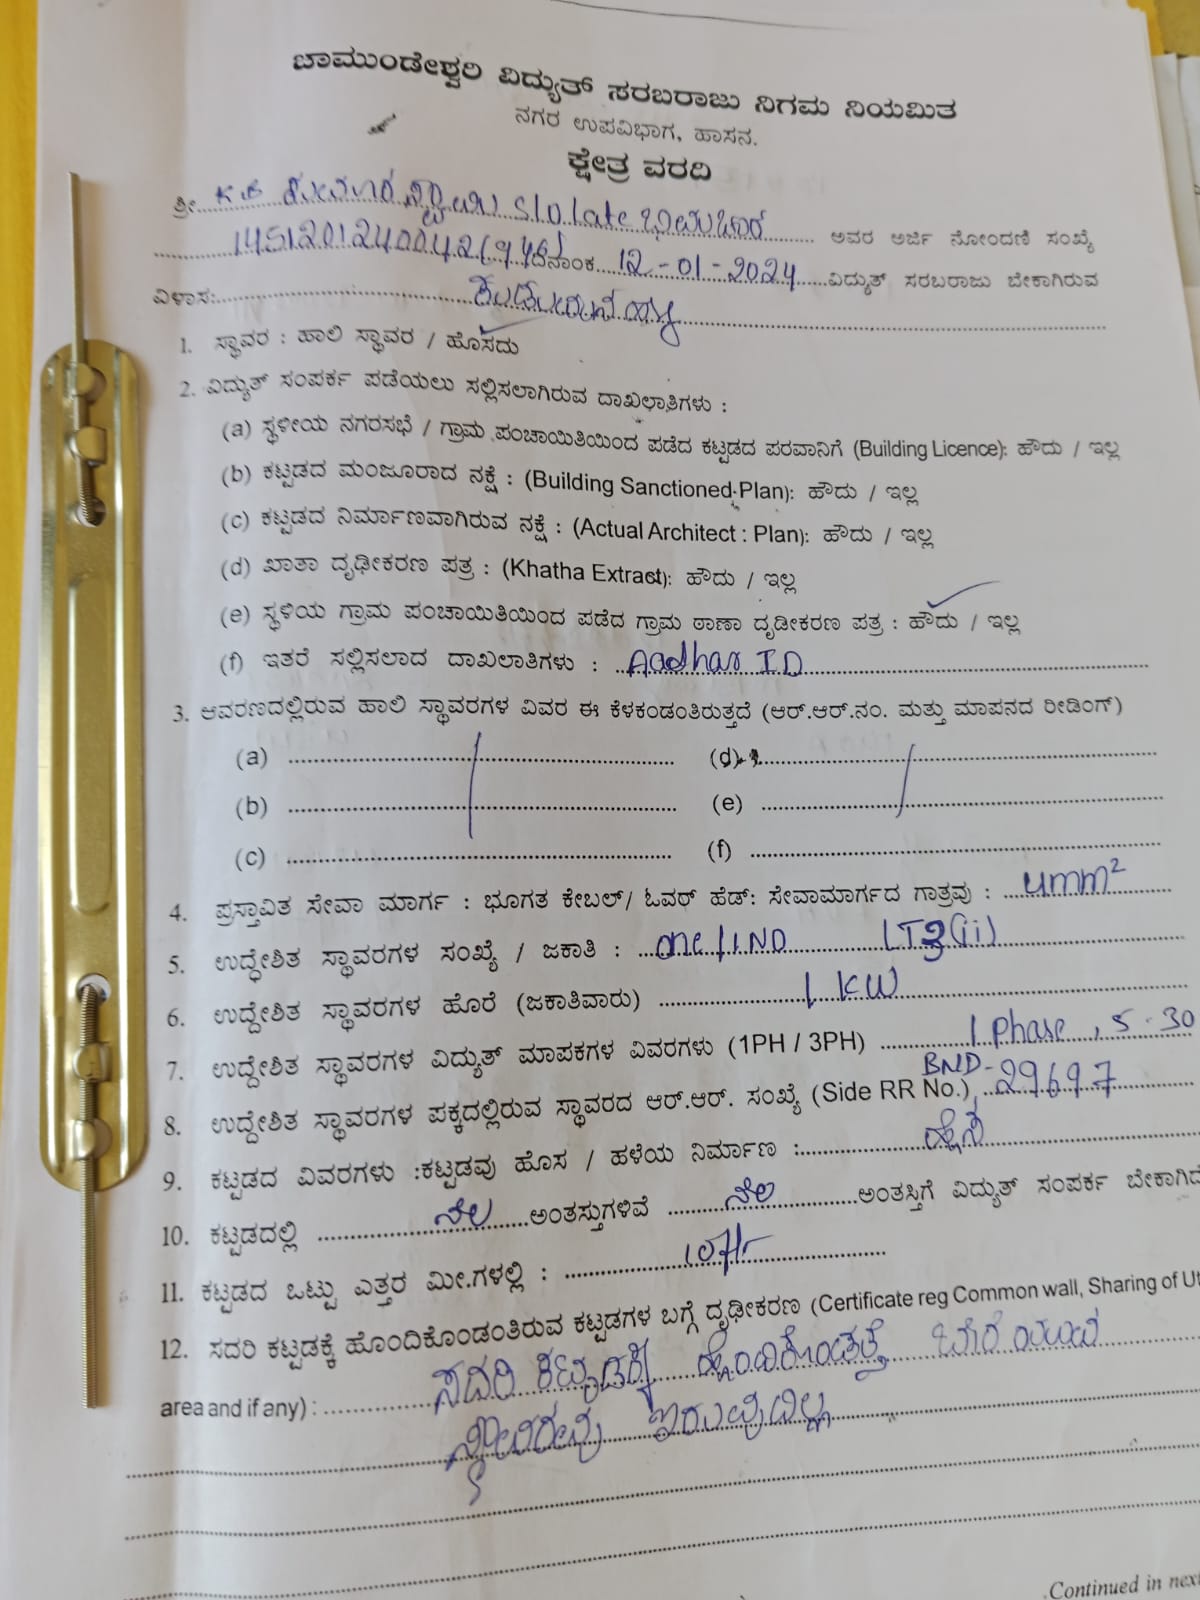 ಚಾಮುಂಡೇಶ್ವರಿ ವಿದ್ಯುತ್ ಸರಬರಾಜು ನಿಗಮ ನಿಯಮಿತ
ನಗರ ಉಪವಿಭಾಗ, ಹಾಸನ.
ಕ್ಷೇತ್ರ ವರದಿ
ಶ್ರೀ S/o late ಅವರ ಅರ್ಜಿ ನೋಂದಣಿ ಸಂಖ್ಯೆ
ದಿನಾಂಕ 12-01-2024 ವಿದ್ಯುತ್ ಸರಬರಾಜು ಬೇಕಾಗಿರುವ
ವಿಳಾಸ:
1. ಸ್ಥಾವರ : ಹಾಲಿ ಸ್ಥಾವರ / ಹೊಸದು
2. ವಿದ್ಯುತ್ ಸಂಪರ್ಕ ಪಡೆಯಲು ಸಲ್ಲಿಸಲಾಗಿರುವ ದಾಖಲಾತಿಗಳು :
(a) ಸ್ಥಳೀಯ ನಗರಸಭೆ / ಗ್ರಾಮ ಪಂಚಾಯಿತಿಯಿಂದ ಪಡೆದ ಕಟ್ಟಡದ ಪರವಾನಿಗೆ (Building Licence): ಹೌದು / ಇಲ್ಲ
(b) ಕಟ್ಟಡದ ಮಂಜೂರಾದ ನಕ್ಷೆ : (Building Sanctioned Plan): ಹೌದು / ಇಲ್ಲ
(c) ಕಟ್ಟಡದ ನಿರ್ಮಾಣವಾಗಿರುವ ನಕ್ಷೆ : (Actual Architect : Plan): ಹೌದು / ಇಲ್ಲ
(d) ಖಾತಾ ದೃಢೀಕರಣ ಪತ್ರ : (Khatha Extract): ಹೌದು / ಇಲ್ಲ
(e) ಸ್ಥಳಿಯ ಗ್ರಾಮ ಪಂಚಾಯಿತಿಯಿಂದ ಪಡೆದ ಗ್ರಾಮ ಠಾಣಾ ದೃಡೀಕರಣ ಪತ್ರ : ಹೌದು / ಇಲ್ಲ
(f) ಇತರೆ ಸಲ್ಲಿಸಲಾದ ದಾಖಲಾತಿಗಳು : Aadhar ID
3. ಆವರಣದಲ್ಲಿರುವ ಹಾಲಿ ಸ್ಥಾವರಗಳ ವಿವರ ಈ ಕೆಳಕಂಡಂತಿರುತ್ತದೆ (ಆರ್.ಆರ್.ನಂ. ಮತ್ತು ಮಾಪನದ ರೀಡಿಂಗ್)
(a) (d)
(b) (e)
(c) (f)
4. ಪ್ರಸ್ತಾವಿತ ಸೇವಾ ಮಾರ್ಗ : ಭೂಗತ ಕೇಬಲ್/ ಓವರ್ ಹೆಡ್: ಸೇವಾಮಾರ್ಗದ ಗಾತ್ರವು : 4mm²
5. ಉದ್ಧೇಶಿತ ಸ್ಥಾವರಗಳ ಸಂಖ್ಯೆ / ಜಕಾತಿ : one/IND
6. ಉದ್ದೇಶಿತ ಸ್ಥಾವರಗಳ ಹೊರೆ (ಜಕಾತಿವಾರು) 1 KW
7. ಉದ್ದೇಶಿತ ಸ್ಥಾವರಗಳ ವಿದ್ಯುತ್ ಮಾಪಕಗಳ ವಿವರಗಳು (1PH / 3PH) 1 Phase, 5-30
8. ಉದ್ದೇಶಿತ ಸ್ಥಾವರಗಳ ಪಕ್ಕದಲ್ಲಿರುವ ಸ್ಥಾವರದ ಆರ್.ಆರ್. ಸಂಖ್ಯೆ (Side RR No.) BND-29697
9. ಕಟ್ಟಡದ ವಿವರಗಳು :ಕಟ್ಟಡವು ಹೊಸ / ಹಳೆಯ ನಿರ್ಮಾಣ : ಹೊಸ
10. ಕಟ್ಟಡದಲ್ಲಿ ನೆಲ ಅಂತಸ್ತುಗಳಿವೆ ನೆಲ ಅಂತಸ್ತಿಗೆ ವಿದ್ಯುತ್ ಸಂಪರ್ಕ ಬೇಕಾಗಿದೆ
11. ಕಟ್ಟಡದ ಒಟ್ಟು ಎತ್ತರ ಮೀ.ಗಳಲ್ಲಿ :
12. ಸದರಿ ಕಟ್ಟಡಕ್ಕೆ ಹೊಂದಿಕೊಂಡಂತಿರುವ ಕಟ್ಟಡಗಳ ಬಗ್ಗೆ ದೃಢೀಕರಣ (Certificate reg Common wall, Sharing of Ut
area and if any) : ಸದರಿ ಕಟ್ಟಡಕ್ಕೆ ಹೊಂದಿಕೊಂಡಂತೆ ಬೇರೆ ಯಾವ
ಸ್ಥಾವರವು ಇರುವುದಿಲ್ಲ
Continued in next